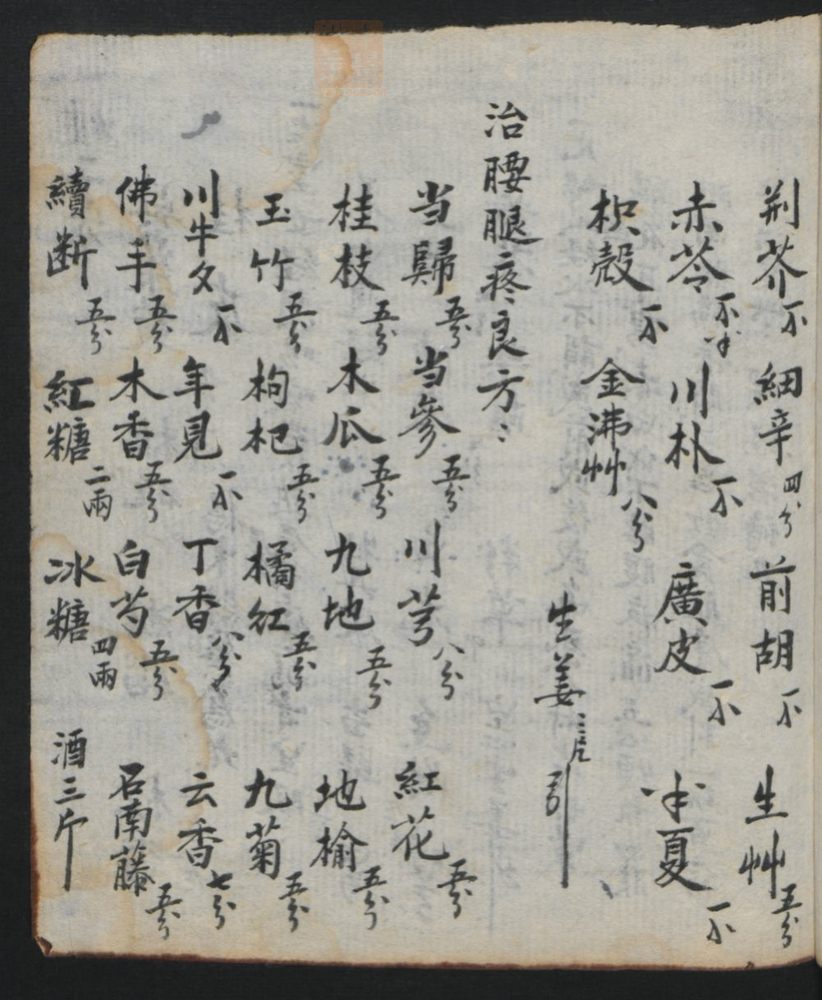 荆芥不 細辛四分 前胡不 生艸五分
赤苓不半 川朴不 廣皮一不 半夏一不
枳殼不 金沸艸八分
生姜三片引
治腰腿疼良方：
当歸五分 当參五分 川芎八分 紅花五分
桂枝五分 木瓜五分 九地五分 地榆五分
玉竹五分 枸杞五分 橘红五分 九菊五分
川牛夕一不 年見一不 丁香八分 云香七分
佛手五分 木香五分 白芍五分 石南藤五分
續断五分 紅糖二兩 冰糖四兩 酒三斤